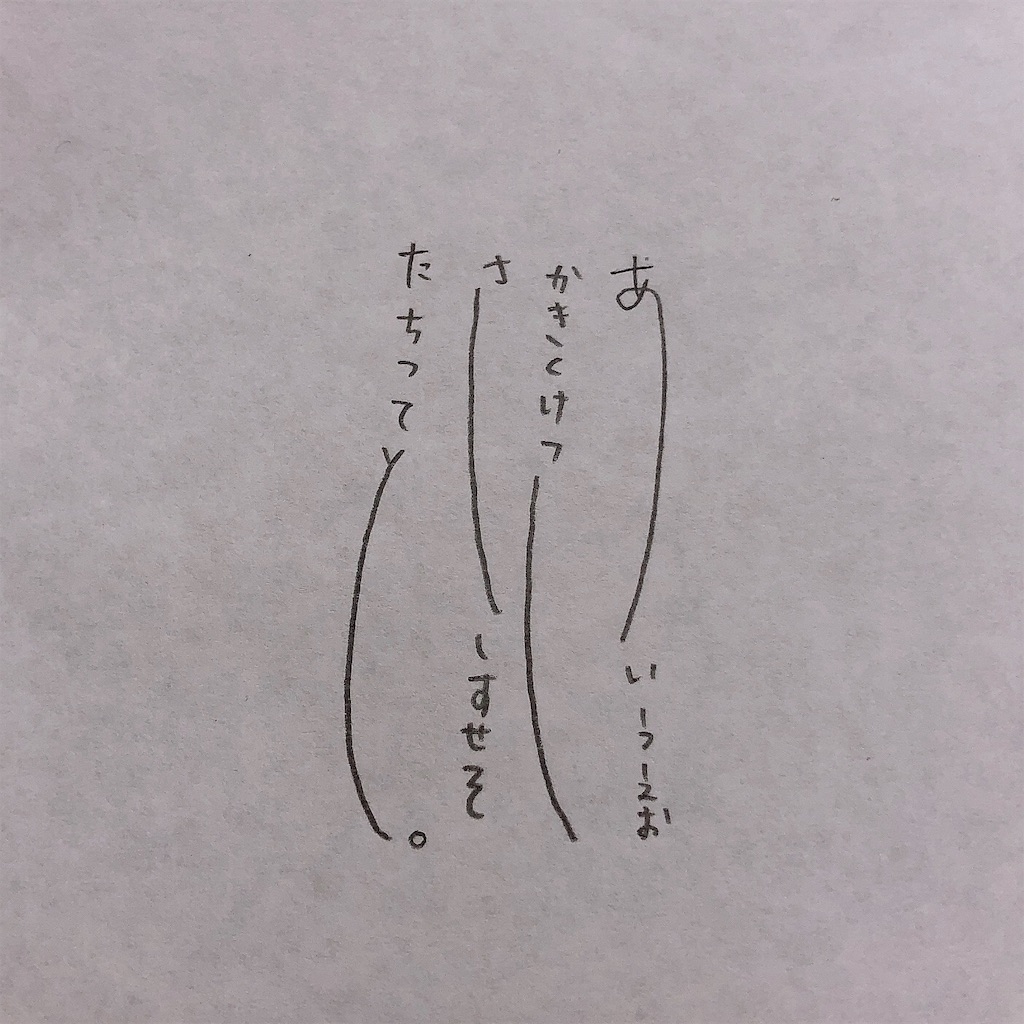 あいうえお
かきくけこ
さしすせそ
たちつてと。